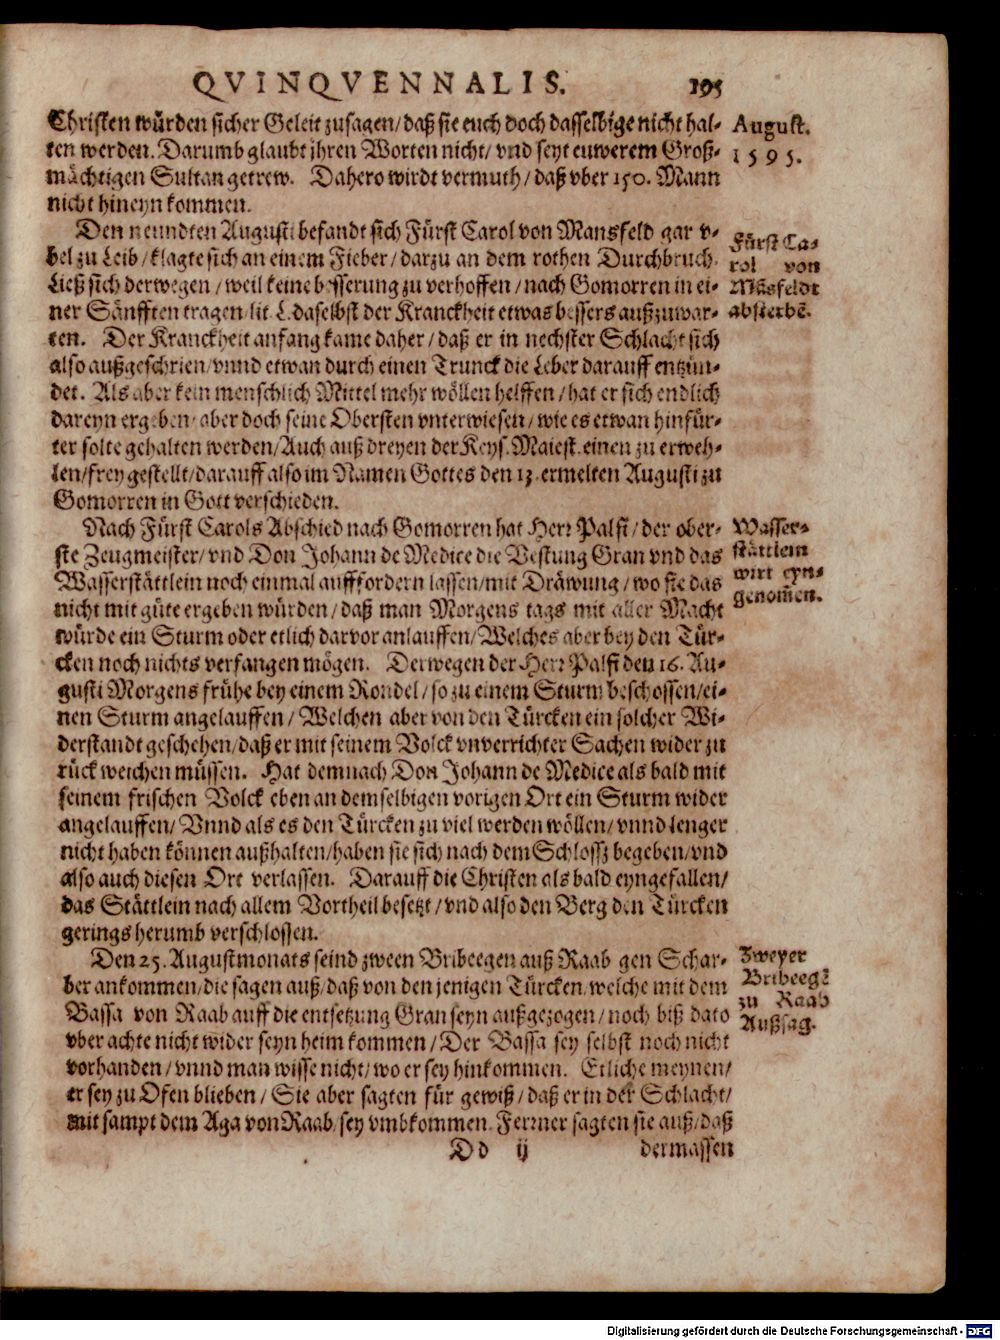 QVINQVENNALIS. 195
Christen würden sicher Geleit zusagen/daß sie euch doch dasselbige nicht hal-
ten werden. Darumb glaubt jhren Worten nicht/ vnd seyt euwerem Groß-
mächtigen Sultan getrew. Dahero wirdt vermuth/daß vber 150. Mann
nicht hineyn kommen.
August.
1595.
Den neundten Augusti befandt sich Fürst Carol von Mansfeld gar v-
bel zu Leib/klagte sich an einem Fieber/darzu an dem rothen Durchbruch.
Ließ sich derwegen/weil keine besserung zu verhoffen/nach Gomorren in ei-
ner Sänfften tragen daselbst der Kranckheit etwas bessers außzuwar-
ten. Der Kranckheit anfang kame daher/daß er in nechster Schlacht sich
also außgeschrien/vnnd etwan durch einen Trunck die Leber darauff entzün-
det. Als aber kein menschlich Mittel mehr wöllen helffen/hat er sich endlich
dareyn ergeben/aber doch seine Obersten vnterwiesen/wie es etwan hinfür-
ter solte gehalten werden/Auch auß dreyen der Keys. Maiest. einen zu erweh-
len/frey gestellt/darauff also im Namen Gottes den ermelten Augusti zu
Gomorren in Gott verschieden.
Fürst Ca-
rol von
Mãsfeldt
absterbẽ.
Nach Fürst Carols Abschied nach Gomorren hat Herr Palfi/der ober-
ste Zeugmeister/vnd Don Johann de Medice die Vestung Gran vnd das
Wasserstättlein noch einmal aufffordern lassen/mit Dräwung/wo sie das
nicht mit güte ergeben würden/daß man Morgens tags mit aller Macht
würde ein Sturm oder etlich darvor anlauffen/Welches aber bey den Tür-
cken noch nichts verfangen mögen. Derwegen der Herr Palfi den 16. Au-
gusti Morgens frühe bey einem Rondel/so zu einem Sturm beschossen/ei-
nen Sturm angelauffen/Welchen aber von den Türcken ein solcher Wi-
derstandt geschehen/daß er mit seinem Volck vnverrichter Sachen wider zu
rück weichen müssen. Hat demnach Don Johann de Medice als bald mit
seinem frischen Volck eben an demselbigen vorigen Ort ein Sturm wider
angelauffen/Vnnd als es den Türcken zu viel werden wöllen/vnnd lenger
nicht haben können außhalten/haben sie sich nach dem Schlossz begeben/vnd
also auch diesen Ort verlassen. Darauff die Christen als bald eyngefallen/
das Stättlein nach allem Vortheil besetzt/vnd also den Berg den Türcken
gerings herumb verschlossen.
Wasser-
stättlein
wirt eyn-
genom̃en.
Den 25. Augustmonats seind zween Bribeegen auß Raab gen Schar-
ber ankommen/die sagen auß/daß von den jenigen Türcken/welche mit dem
Bassa von Raab auff die entsetzung Gran seyn außgezogen/noch biß dato
vber achte nicht wider seyn heim kommen/Der Bassa sey selbst noch nicht
vorhanden/vnnd man wisse nicht/wo er sey hinkommen. Etliche meynen/
er sey zu Ofen blieben/Sie aber sagten für gewiß/daß er in der Schlacht/
mit sampt dem Aga von Raab/sey vmbkommen. Ferrner sagten sie auß/daß
Zweyer
Bribeegẽ
zu Raab
Außsag.
Dd ij dermassen
Digitalisierung gefördert durch die Deutsche Forschungsgemeinschaft - DFG